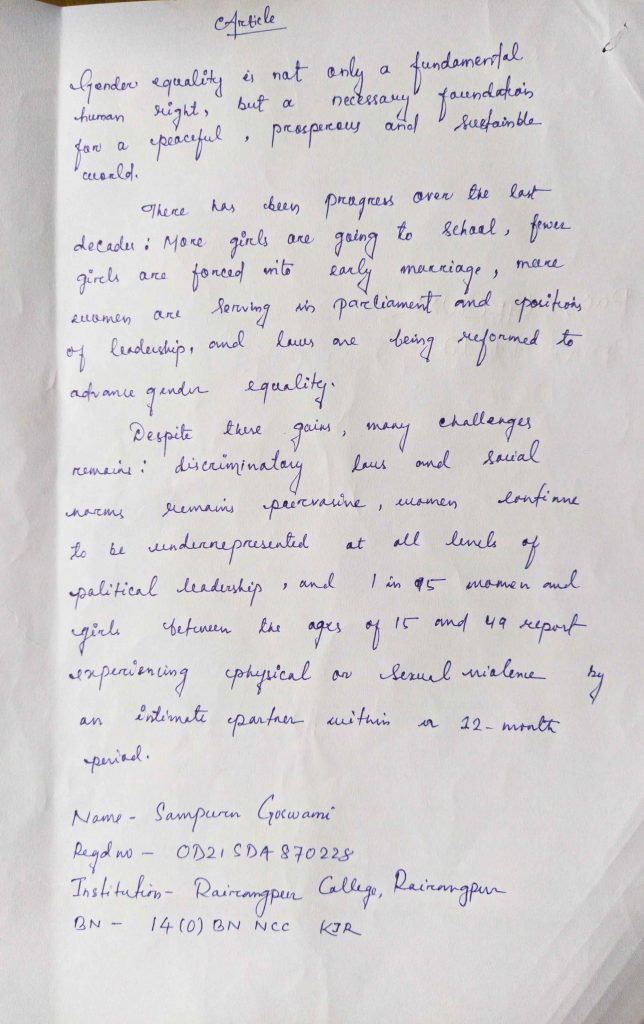 Article
Gender equality is not only a fundamental
human right, but a necessary foundation
for a peaceful, prosperous and sustainble
world.
There has been progress over the last
decades: More girls are going to school, fewer
girls are forced into early marriage, more
women are serving in parliament and positions
of leadership, and laws are being reformed to
advance gender equality.
Despite these gains, many challenges
remains: discriminatory laws and social
norms remains paervasive, women continue
to be underrepresented at all levels of
political leadership, and 1 in 5 women and
girls between the ages of 15 and 49 report
experiencing physical or sexual violence by
an intimate partner within a 12-month
period.
Name - Sampurn Goswami
Regd no - OD21SDA870228
Institution - Rairangpur College, Rairangpur
BN - 14(O) BN NCC KJR